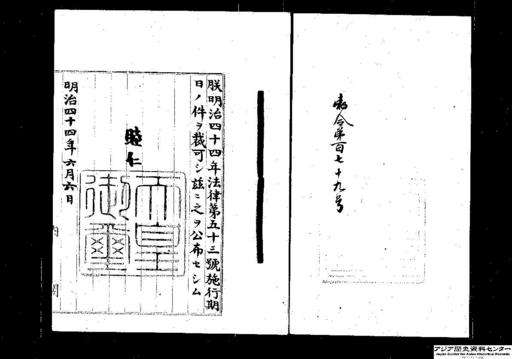 勅令第百七十九号
朕明治四十四年法律第五十三號施行期
日ノ件ヲ裁可シ茲ニ之ヲ公布セシム
睦仁
天皇
御璽
明治四十四年六月六日
内閣
アジア歴史資料センター
Japan Center for Asian Historical Records